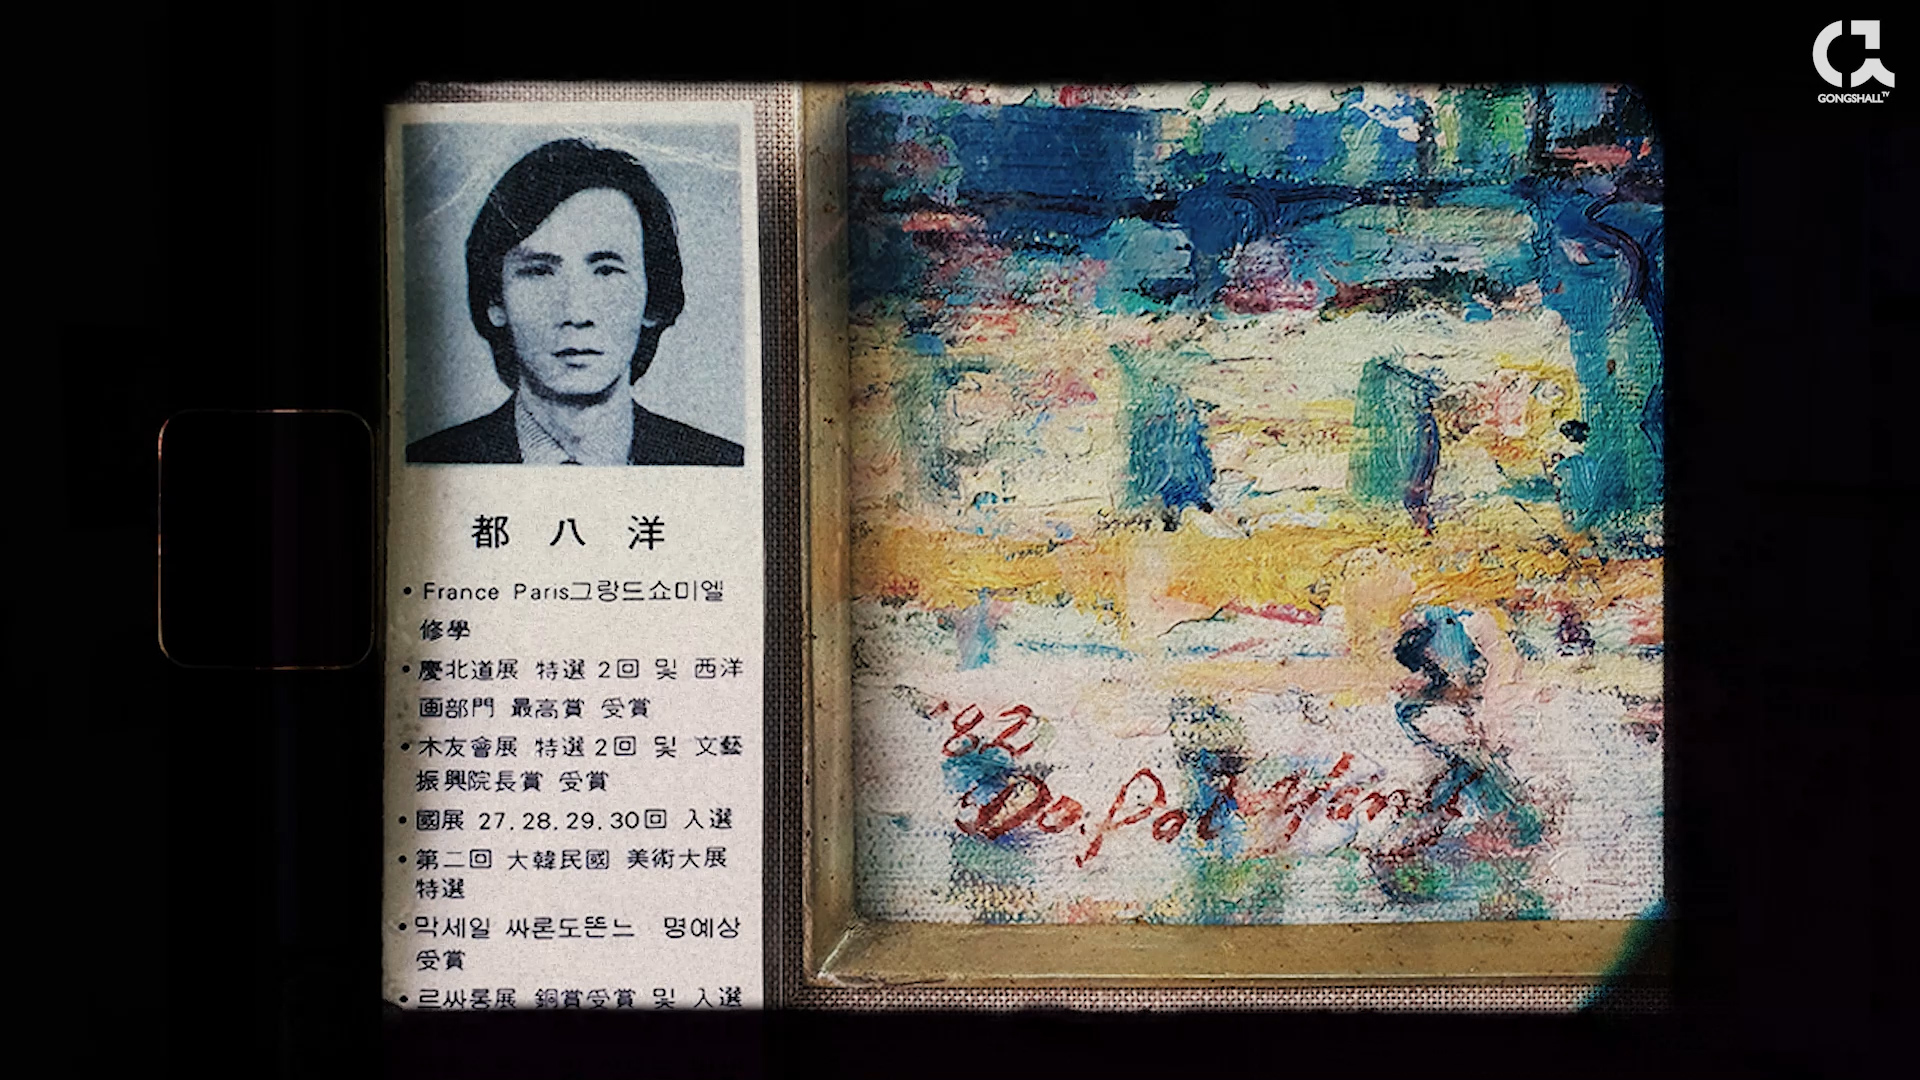 GONGSHALL TV
都 八 洋
• France Paris그랑드쇼미엘
修學
• 慶北道展 特選 2回 및 西洋
画部門 最高賞 受賞
• 木友會展 特選 2回 및 文藝
振興院長賞 受賞
• 國展 27.28.29.30回 入選
• 第二回 大韓民國 美術大展
特選
• 막세일 싸론도똔느 명예상
受賞
• 르싸롱展 銅賞受賞 및 入選
'82
Do. Pal Yang